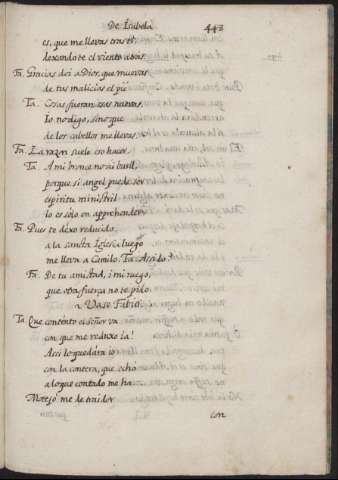 De Isabela 443
es, que me llevas tras ti
dexandote el viento atras.
Fa. Gracias doi a Dios, que muevas
de tus malicias el pie
Ta. Cosas fueran essas nuevas,
Io no digo, sino que
de los cabellos me llevas.
Fa. La razon suele esso hacer.
Ta. A mi bronce no
porque si angel puede ser
espiritu ministril
lo es solo en apprehender.
Fa. Pues te dexo reducido,
a la sancta Iglesia luego
me lleva a Camilo. Ta. Assi lo
Fa. De tu amistad, i mi ruego,
que otra fuerça no te pido.
Vase Fabio
Ta. Que contento el señor va
con que me reduxo ia!
Assi lo quedára io
con la contera, que echó
a lo que contado me ha.
me de
con